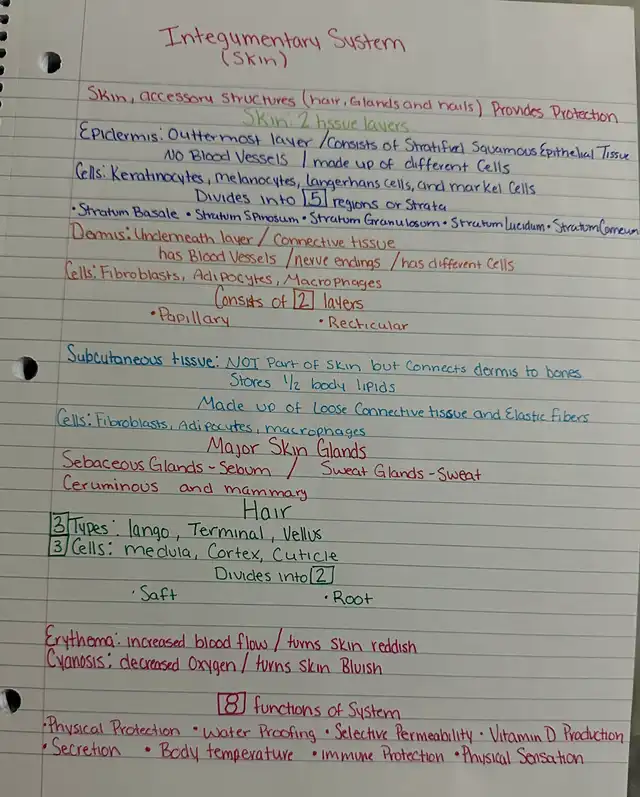 Integumentary System
(Skin)
Skin, accessory structures (hair, Glands and nails) Provides Protection
Skin: 2 tissue layers
Epidermis: Outtermost layer / Consists of Stratified Squamous Epithelial Tissue
No Blood Vessels / made up of different Cells
Cells: Keratinocytes, melanocytes, langerhans cells, and markel cells
Divides into 5 regions or Strata
• Stratum Basale • Stratum Spinosum • Stratum Granulosum • Stratum Lucidum • Stratum Corneum
Dermis: Underneath layer / Connective tissue
has Blood Vessels / nerve endings / has different Cells
Cells: Fibroblasts, Adipocytes, Macrophages
Consists of 2 layers
• Papillary • Recticular
Subcutaneous tissue: NOT Part of Skin but Connects dermis to bones
Stores 1/2 body lipids
Made up of Loose Connective tissue and Elastic fibers
Cells: Fibroblasts, Adipocytes, macrophages
Major Skin Glands
Sebaceous Glands - Sebum / Sweat Glands - Sweat
Ceruminous and mammary
Hair
3 Types: lango, Terminal, Vellus
3 Cells: medula, Cortex, Cuticle
Divides into 2
• Saft • Root
Erythema: increased blood flow / turns skin reddish
Cyanosis: decreased Oxygen / turns Skin Bluish
8 functions of System
• Physical Protection • Water Proofing • Selective Permeability • Vitamin D Production
• Secretion • Body temperature • immune Protection • Physical Sensation